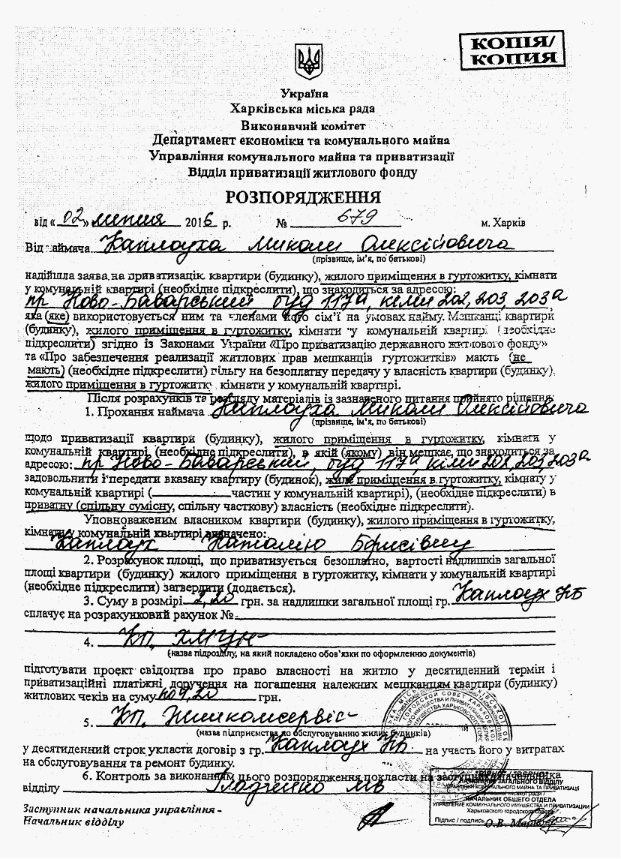 КОПІЯ/
КОПИЯ
Україна
Харківська міська рада
Виконавчий комітет
Департамент економіки та комунального майна
Управління комунального майна та приватизації
Відділ приватизації житлового фонду
РОЗПОРЯДЖЕННЯ
від «02» липня 2016 р. № 679 м. Харків
Від наймача Каплауха Миколи Олексійовича
(прізвище, ім'я, по батькові)
надійшла заява на приватизацію квартири (будинку), жилого приміщення в гуртожитку, кімнати
у комунальній квартирі (необхідне підкреслити), що знаходиться за адресою:
пр Ново-Баварський буд 117а, кімн 202, 203, 203а
яка (яке) використовується ним та членами його сім'ї на умовах найму. Мешканці квартири
(будинку), жилого приміщення в гуртожитку, кімнати у комунальній квартирі (необхідне
підкреслити) згідно із Законами України «Про приватизацію державного житлового фонду»
та «Про забезпечення реалізації житлових прав мешканців гуртожитків» мають (не
мають) (необхідне підкреслити) пільгу на безоплатну передачу у власність квартири (будинку),
жилого приміщення в гуртожитку, кімнати у комунальній квартирі.
Після розрахунків та розгляду матеріалів із зазначеного питання прийнято рішення:
1. Прохання наймача Каплауха Миколи Олексійовича
(прізвище, ім'я, по батькові)
щодо приватизації квартири (будинку), жилого приміщення в гуртожитку, кімнати у
комунальній квартирі (необхідне підкреслити), в якій (якому) він мешкає, що знаходиться за
адресою: пр Ново-Баварський, буд 117а кімн 202, 203, 203а
задовольнити і передати вказану квартиру (будинок), жиле приміщення в гуртожитку, кімнату у
комунальній квартирі ( частин у комунальній квартирі), (необхідне підкреслити) в
приватну (спільну сумісну, спільну часткову) власність (необхідне підкреслити).
Уповноваженим власником квартири (будинку), жилого приміщення в гуртожитку,
кімнати у комунальній квартирі визначено:
Каплаух Наталію Борисівну
2. Розрахунок площі, що приватизується безоплатно, вартості надлишків загальної
площі квартири (будинку) жилого приміщення в гуртожитку, кімнати у комунальній квартирі
(необхідне підкреслити) затвердити (додається).
3. Суму в розмірі 2,20 грн. за надлишки загальної площі гр. Каплаух НБ
сплачує на розрахунковий рахунок №
4. КП
(назва підрозділу, на який покладено обов'язки по оформленню документа)
підготувати проект свідоцтва про право власності на житло у десятиденний термін і
приватизаційні платіжні доручення на погашення належних мешканцям квартири (будинку)
житлових чеків на суму грн.
5. КП, Жилкомсервіс
(назва підприємства по обслуговуванню жилих будинків)
у десятиденний строк укласти договір з гр. Каплаух НБ на участь його у витратах
на обслуговування та ремонт будинку.
6. Контроль за виконанням цього розпорядження покласти на заступника начальника
відділу
Заступник начальника управління -
Начальник відділу
НАЧАЛЬНИК ЗАГАЛЬНОГО ВІДДІЛУ
НАЧАЛЬНИК ОБЩЕГО ОТДЕЛА
УПРАВЛЕНИЕ КОММУНАЛЬНОГО ИМУЩЕСТВА И ПРИВАТИЗАЦИИ
Харьковского городского совета
Підпис / подпись О.В.